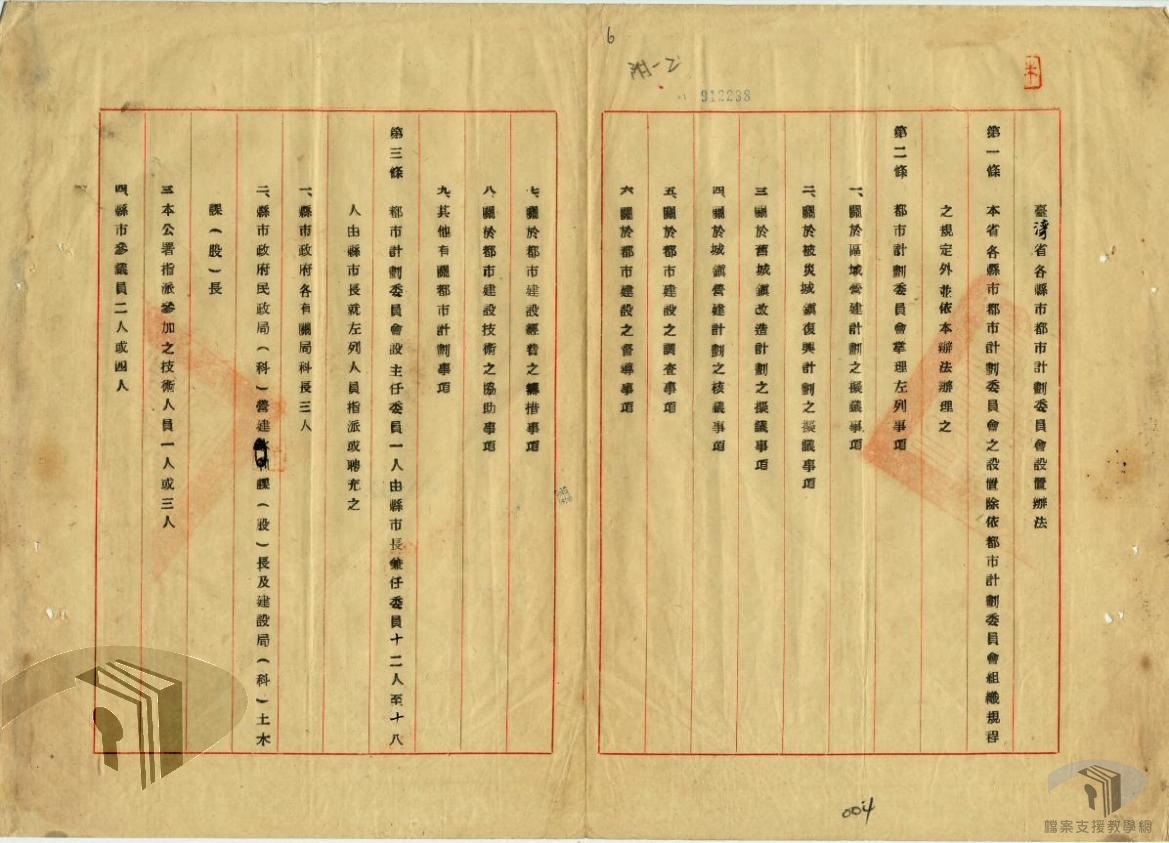 6
附一乙
912238
臺灣省各縣市都市計劃委員會設置辦法
第一條 本省各縣市都市計劃委員會之設置除依都市計劃委員會組織規程
之規定外並依本辦法辦理之
第二條 都市計劃委員會掌理左列事項
一、關於區域營建計劃之擬議事項
二、關於被災城鎮復興計劃之擬議事項
三、關於舊城鎮改造計劃之擬議事項
四、關於城鎮營建計劃之核議事項
五、關於都市建設之調查事項
六、關於都市建設之督導事項
七、關於都市建設經費之籌措事項
八、關於都市建設技術之協助事項
九、其他有關都市計劃事項
第三條 都市計劃委員會設主任委員一人由縣市長兼任委員十二人至十八
人由縣市長就左列人員指派或聘充之
一、縣市政府各有關局科長三人
二、縣市政府民政局(科)營建課(股)長及建設局(科)土木
課(股)長
三、本公署指派參加之技術人員一人或三人
四、縣市參議員二人或四人
004
檔案支援教學網